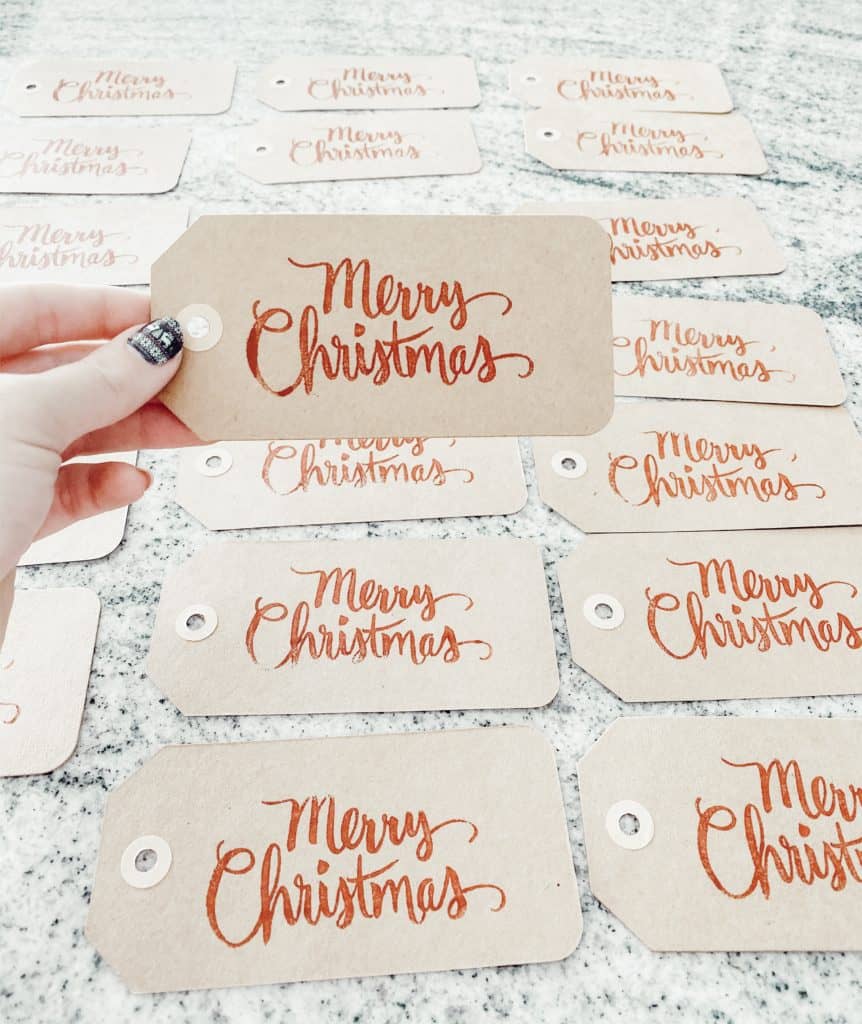 Merry
Christmas
Merry
Christmas
Merry
Christmas
Merry
Christmas
Merry
Christmas
Merry
Christmas
Merry
Christmas
Merry
Christmas
Merry
Christmas
Merry
Christmas
Merry
Christmas
Merry
Christmas
Merry
Christmas
Merry
Christmas
Merry
Christmas
Merr
Christ